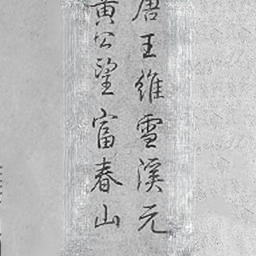 唐王維雪溪元
黃公望富春山